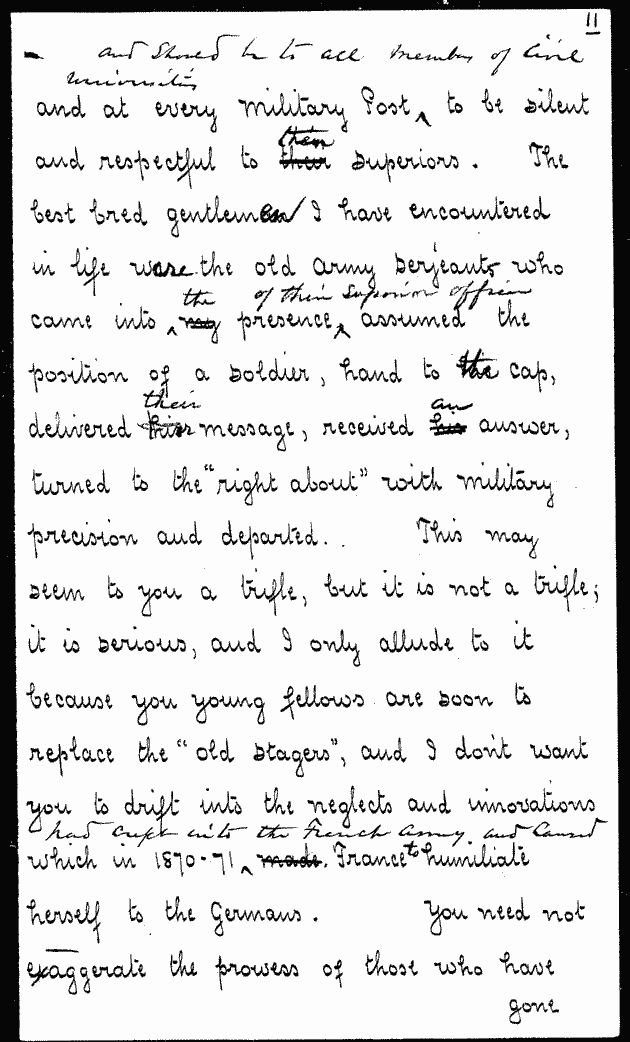 11
and should be to all members of Civil
Universities
and at every military Post ‸ to be silent
them
and respectful to their superiors. The
best bred gentlemen I have encountered
in life were the old army serjeants who
the of their superior officer
came into ‸ my presence, ‸ assumed the
position of a soldier, hand to the cap,
their an
delivered his message, received his answer,
turned to the "right about" with military
precision and departed. This may
seem to you a trifle, but it is not a trifle;
it is serious, and I only allude to it
because you young fellows are soon to
replace the "old stagers", and I don't want
you to drift into the neglects and innovations
had crept into the French Army and caused
which in 1870-71 ‸ made France to humiliate
herself to the Germans. You need not
exaggerate the prowess of those who have
gone